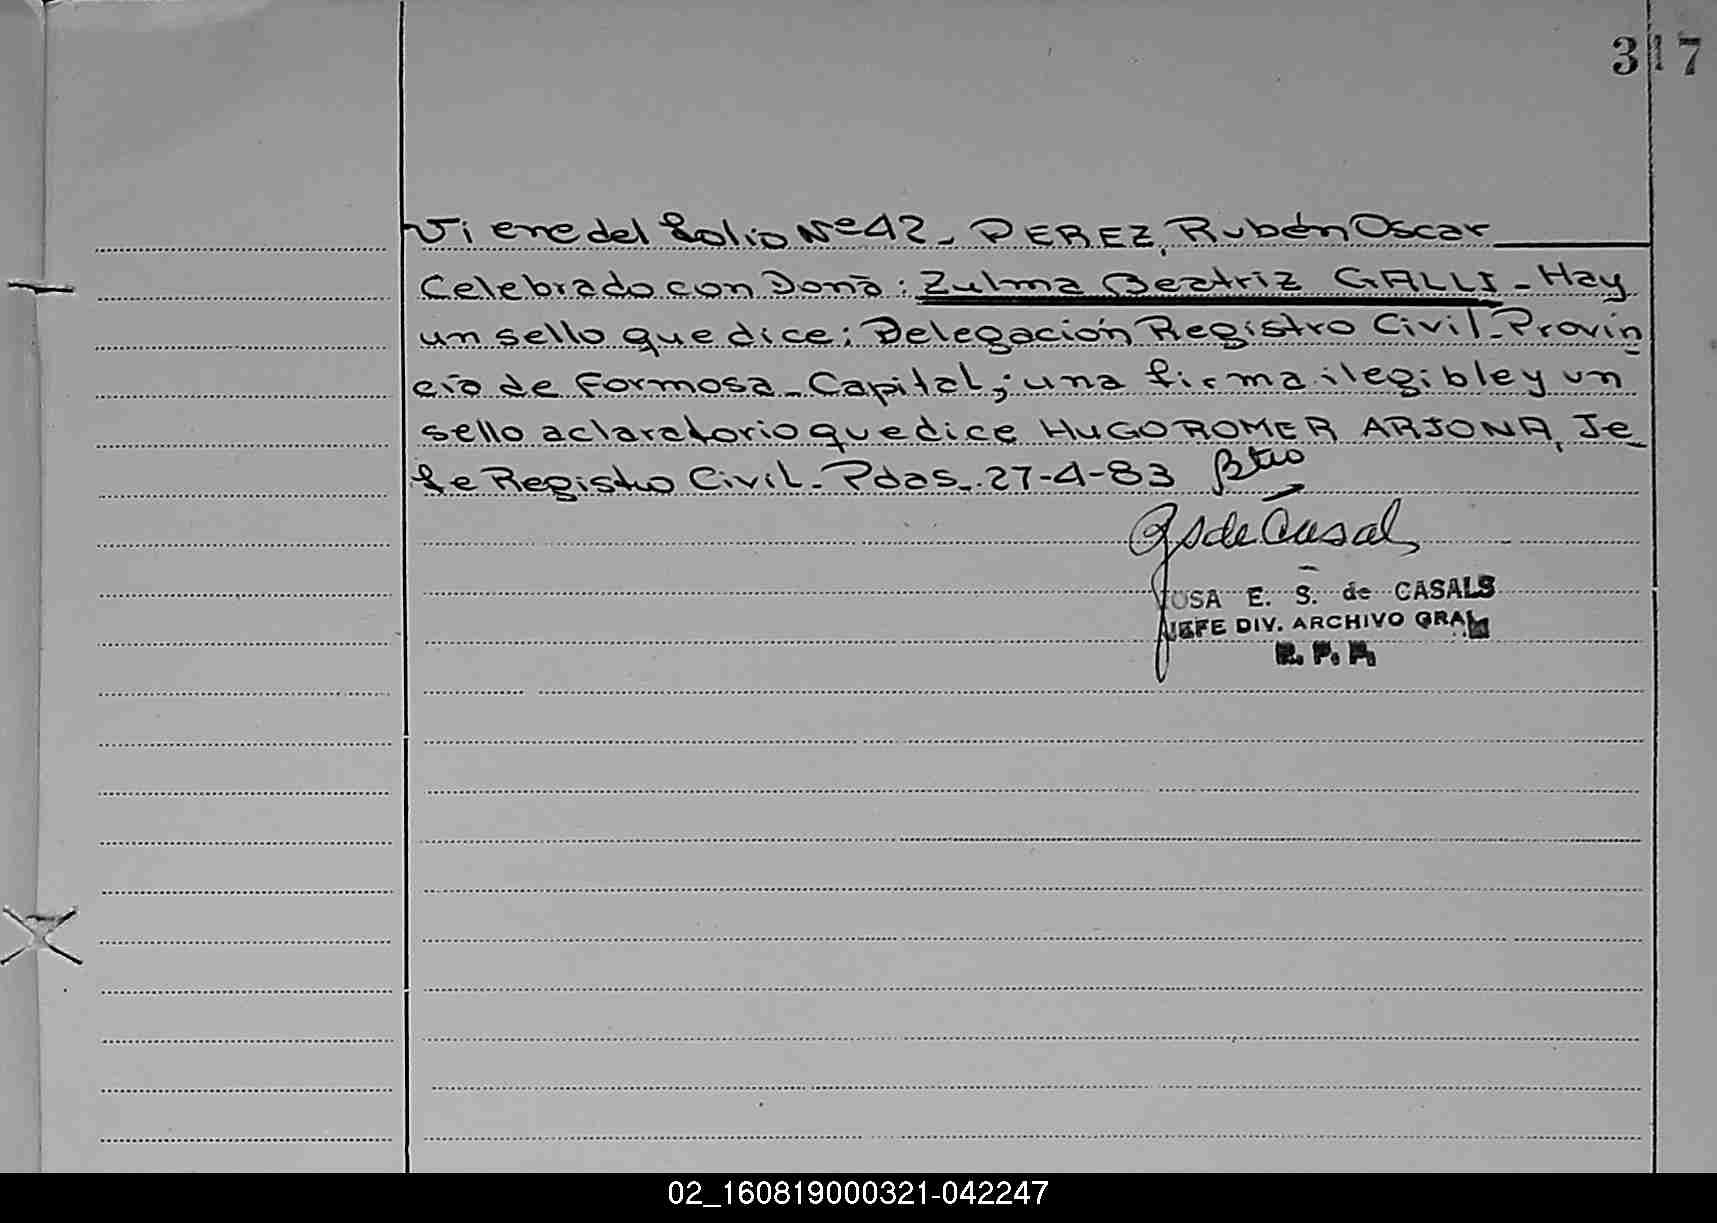 317
Viene del folio Nº 42 - PEREZ, Rubén Oscar
Celebrado con Doña: Zulma Beatriz GALLI - Hay
un sello que dice: Delegación Registro Civil - Provin
cia de Formosa - Capital; una firma ilegible y un
sello aclaratorio que dice HUGO ROMER ARJONA, Je
fe Registro Civil - Pdas. 27-4-83
E. S. de CASALS
JEFE DIV. ARCHIVO GRAL
02_160819000321-042247